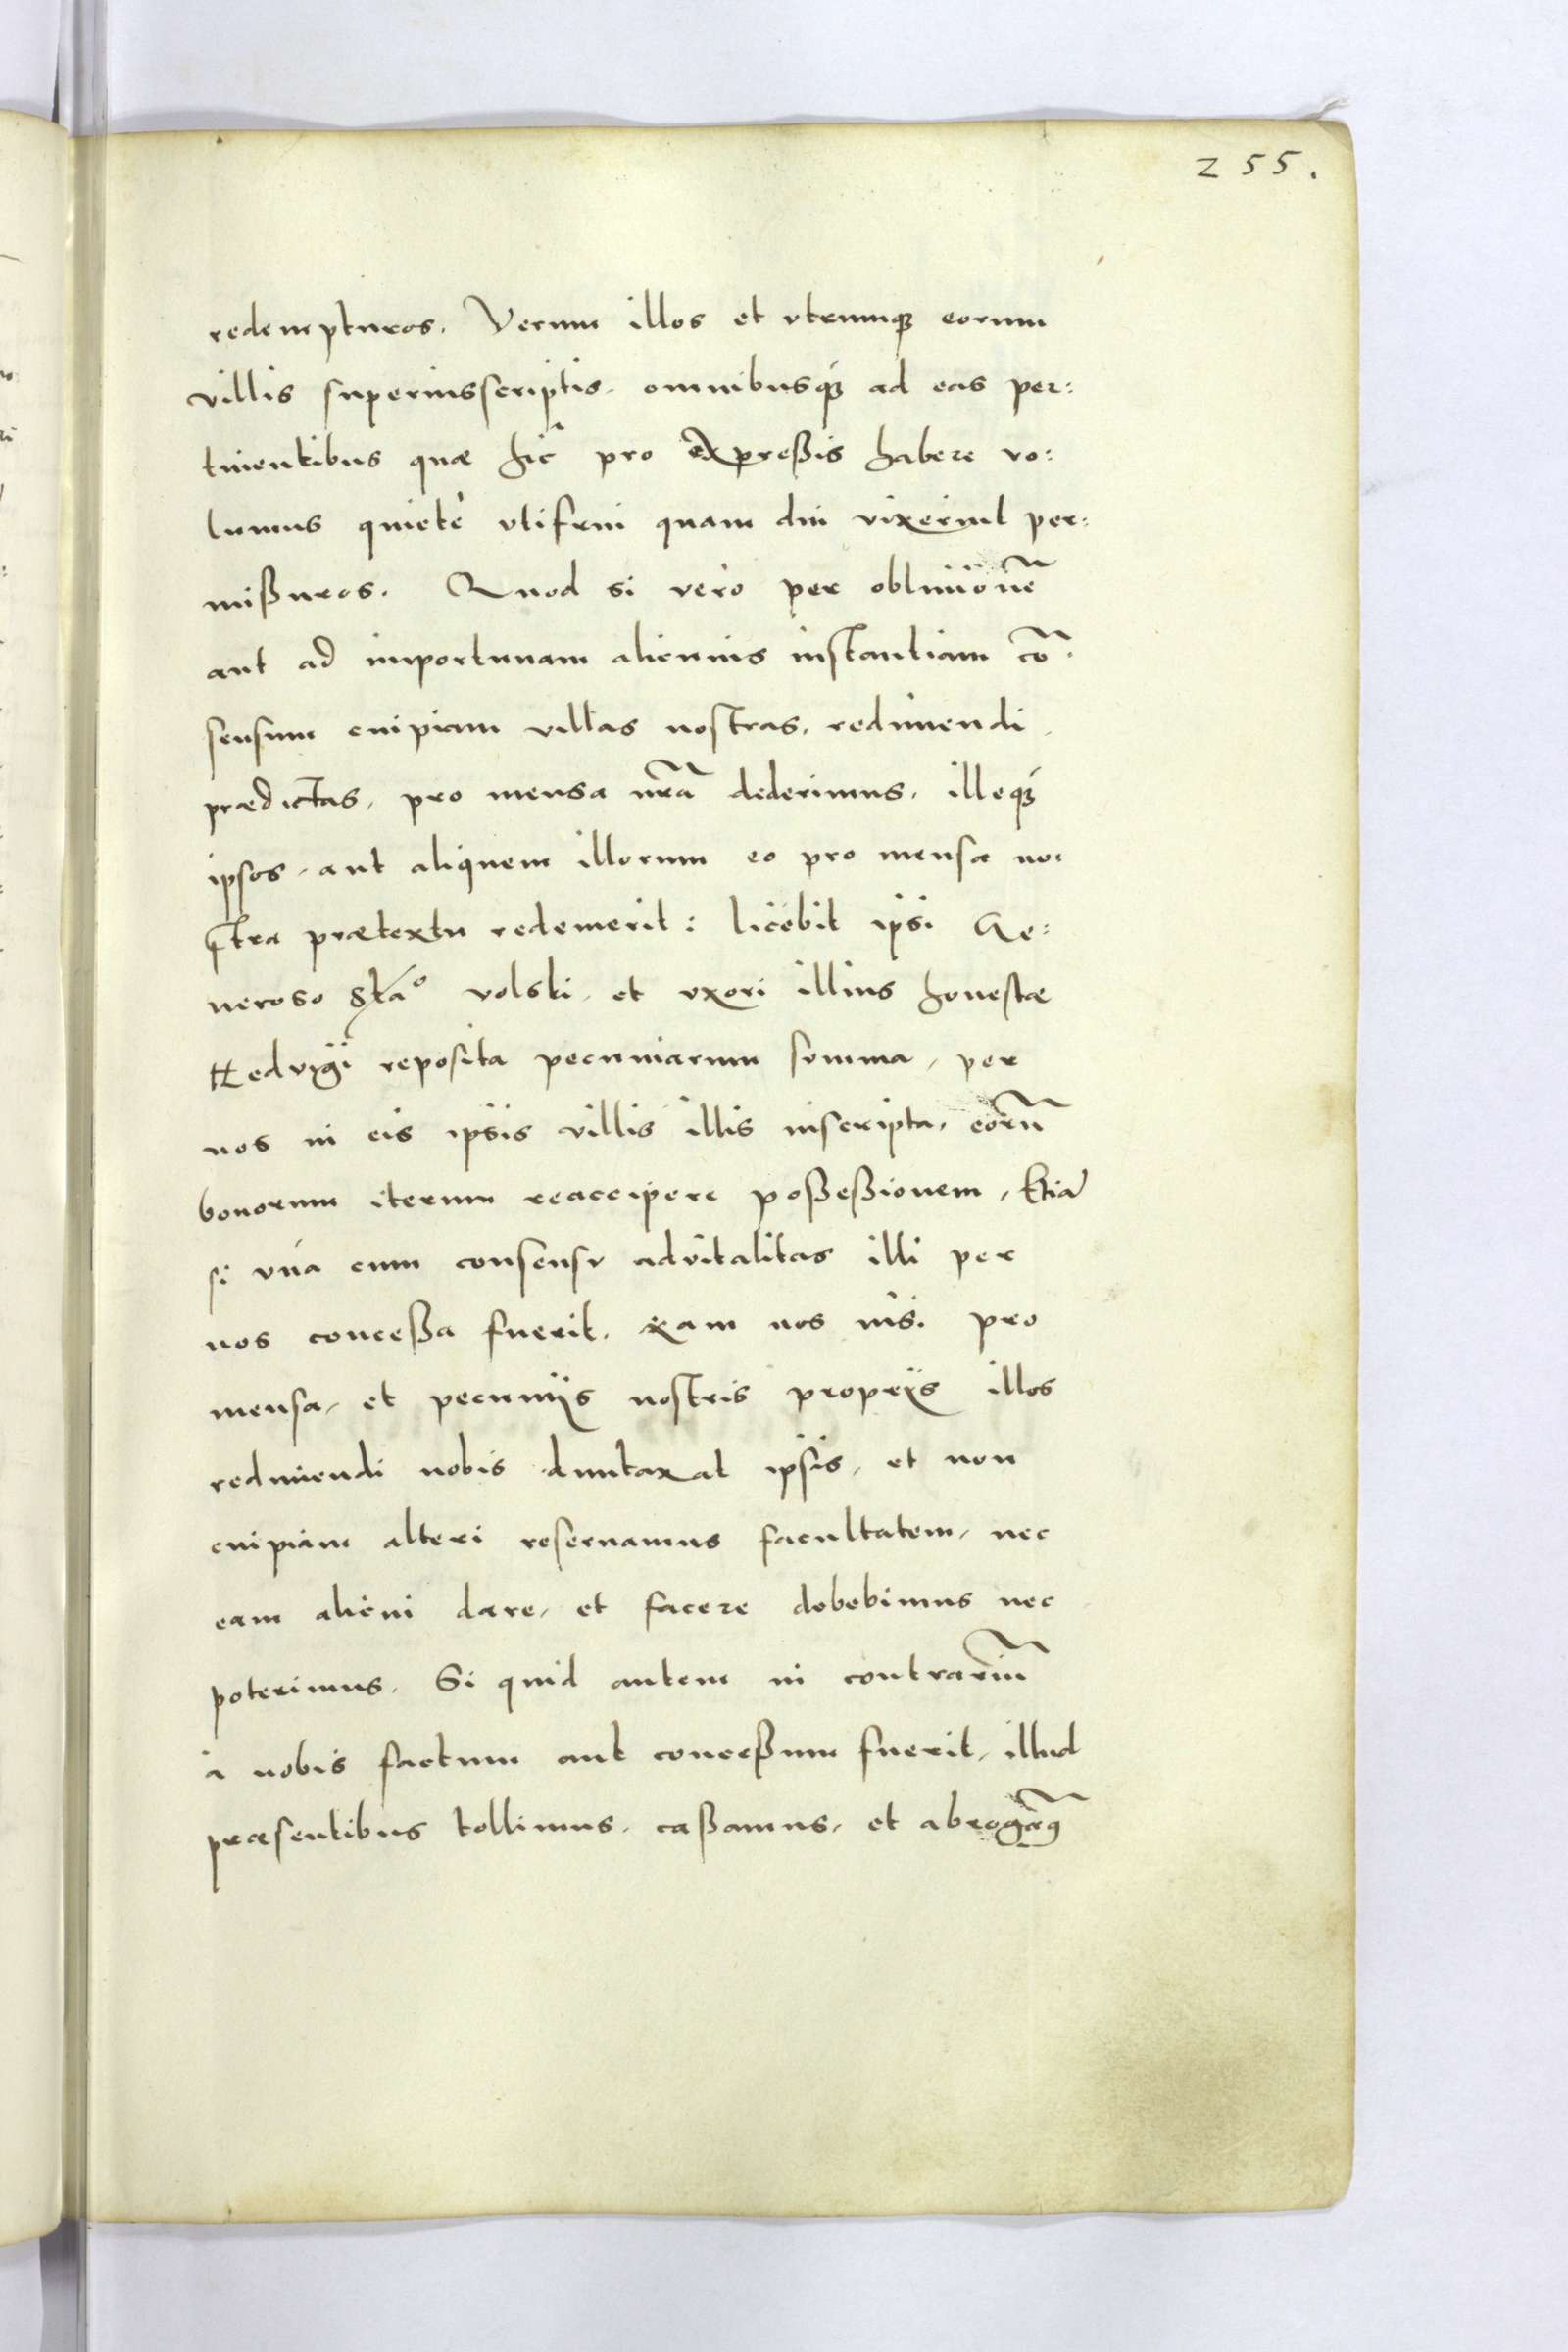 255.
redempturos. Verum illos et vtrumq́ꝫ eorum
villis superiusscriptis, omnibusq́ꝫ ad eas per:
tinentibus quæ hîc pro expreßis habere vo:
lumus quietè vtifrui quam diu vixerint per:
mißuros. Quod si vero per obliuionẽ
aut ad importunam alicuius instantiam cõ:
sensum cuipiam villas nostras, redimendi,
prædictas, pro mensa nrã dederimus, illeq́ꝫ
ipsos, aut aliquem illorum eo pro mensa no:
stra prætextu redemerit: licebit ipsi Ge:
neroso Stão volski, et vxori illius honestæ
Hedvigi reposita pecuniarum summa, per
nos in eis ipsis villis illis inscripta, eorũ
bonorum iterum reaccipere poßeßionem, Etiã
si vna cum consensv advitalitas illi per
nos conceßa fuerit. Nam nos nisi pro
mensa, et pecunijs nostris proprijs illos
redimendi nobis duntaxat ipsis, et non
cuipiam alteri reseruamus facultatem, nec
eam alicui dare, et facere debebimus nec
poterimus. Si quid autem in contrariũ
à nobis factum aut conceßum fuerit, illud
præsentibus tollimus, caßamus, et abrogãꝯ